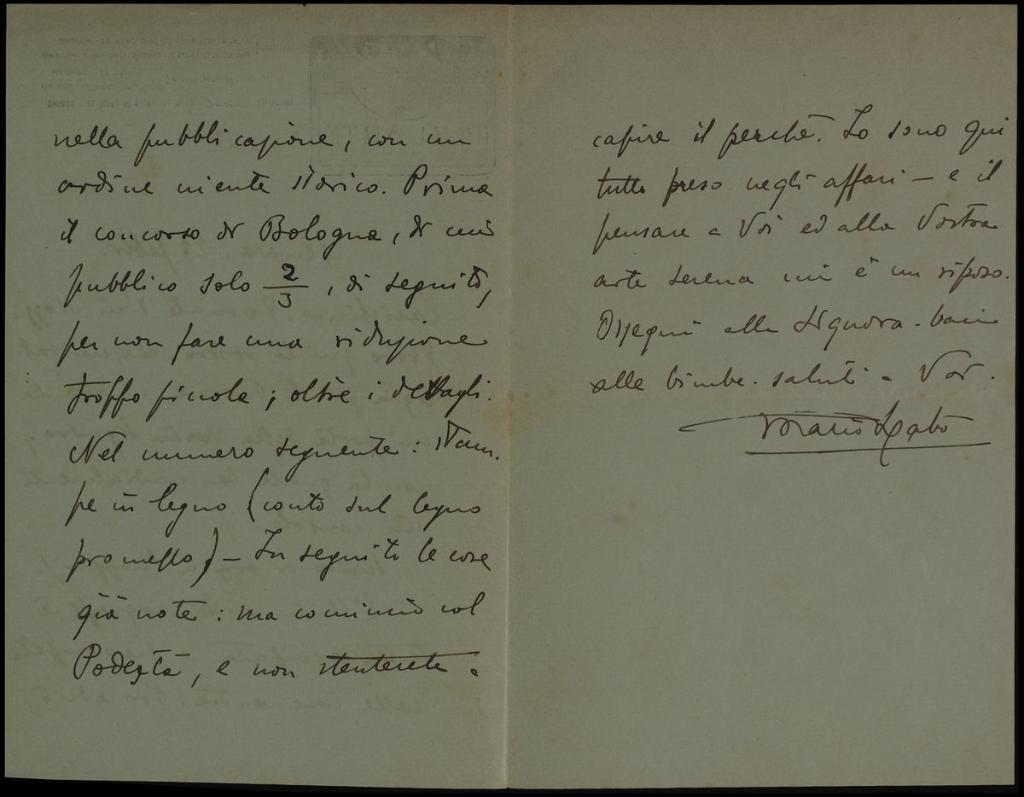 nella pubblicazione, con un
ordine niente storico. Prima
il concorso di Bologna, di cui
pubblico solo 2/3, di seguito,
per non fare una riduzione
troppo piccola; oltre i dettagli.
Nel numero seguente: stam-
pe in legno (conto sul legno
promesso) – In seguito le cose
già note: ma comincio col
Podestà, e non stenterete a
capire il perchè. Io sono qui
tutto preso negli affari – e il
pensare a Voi ed alla Vostra
arte serena mi è un riposo.
Ossequi alla Signora. baci
alle bimbe. saluti a Voi.
Mario Labò